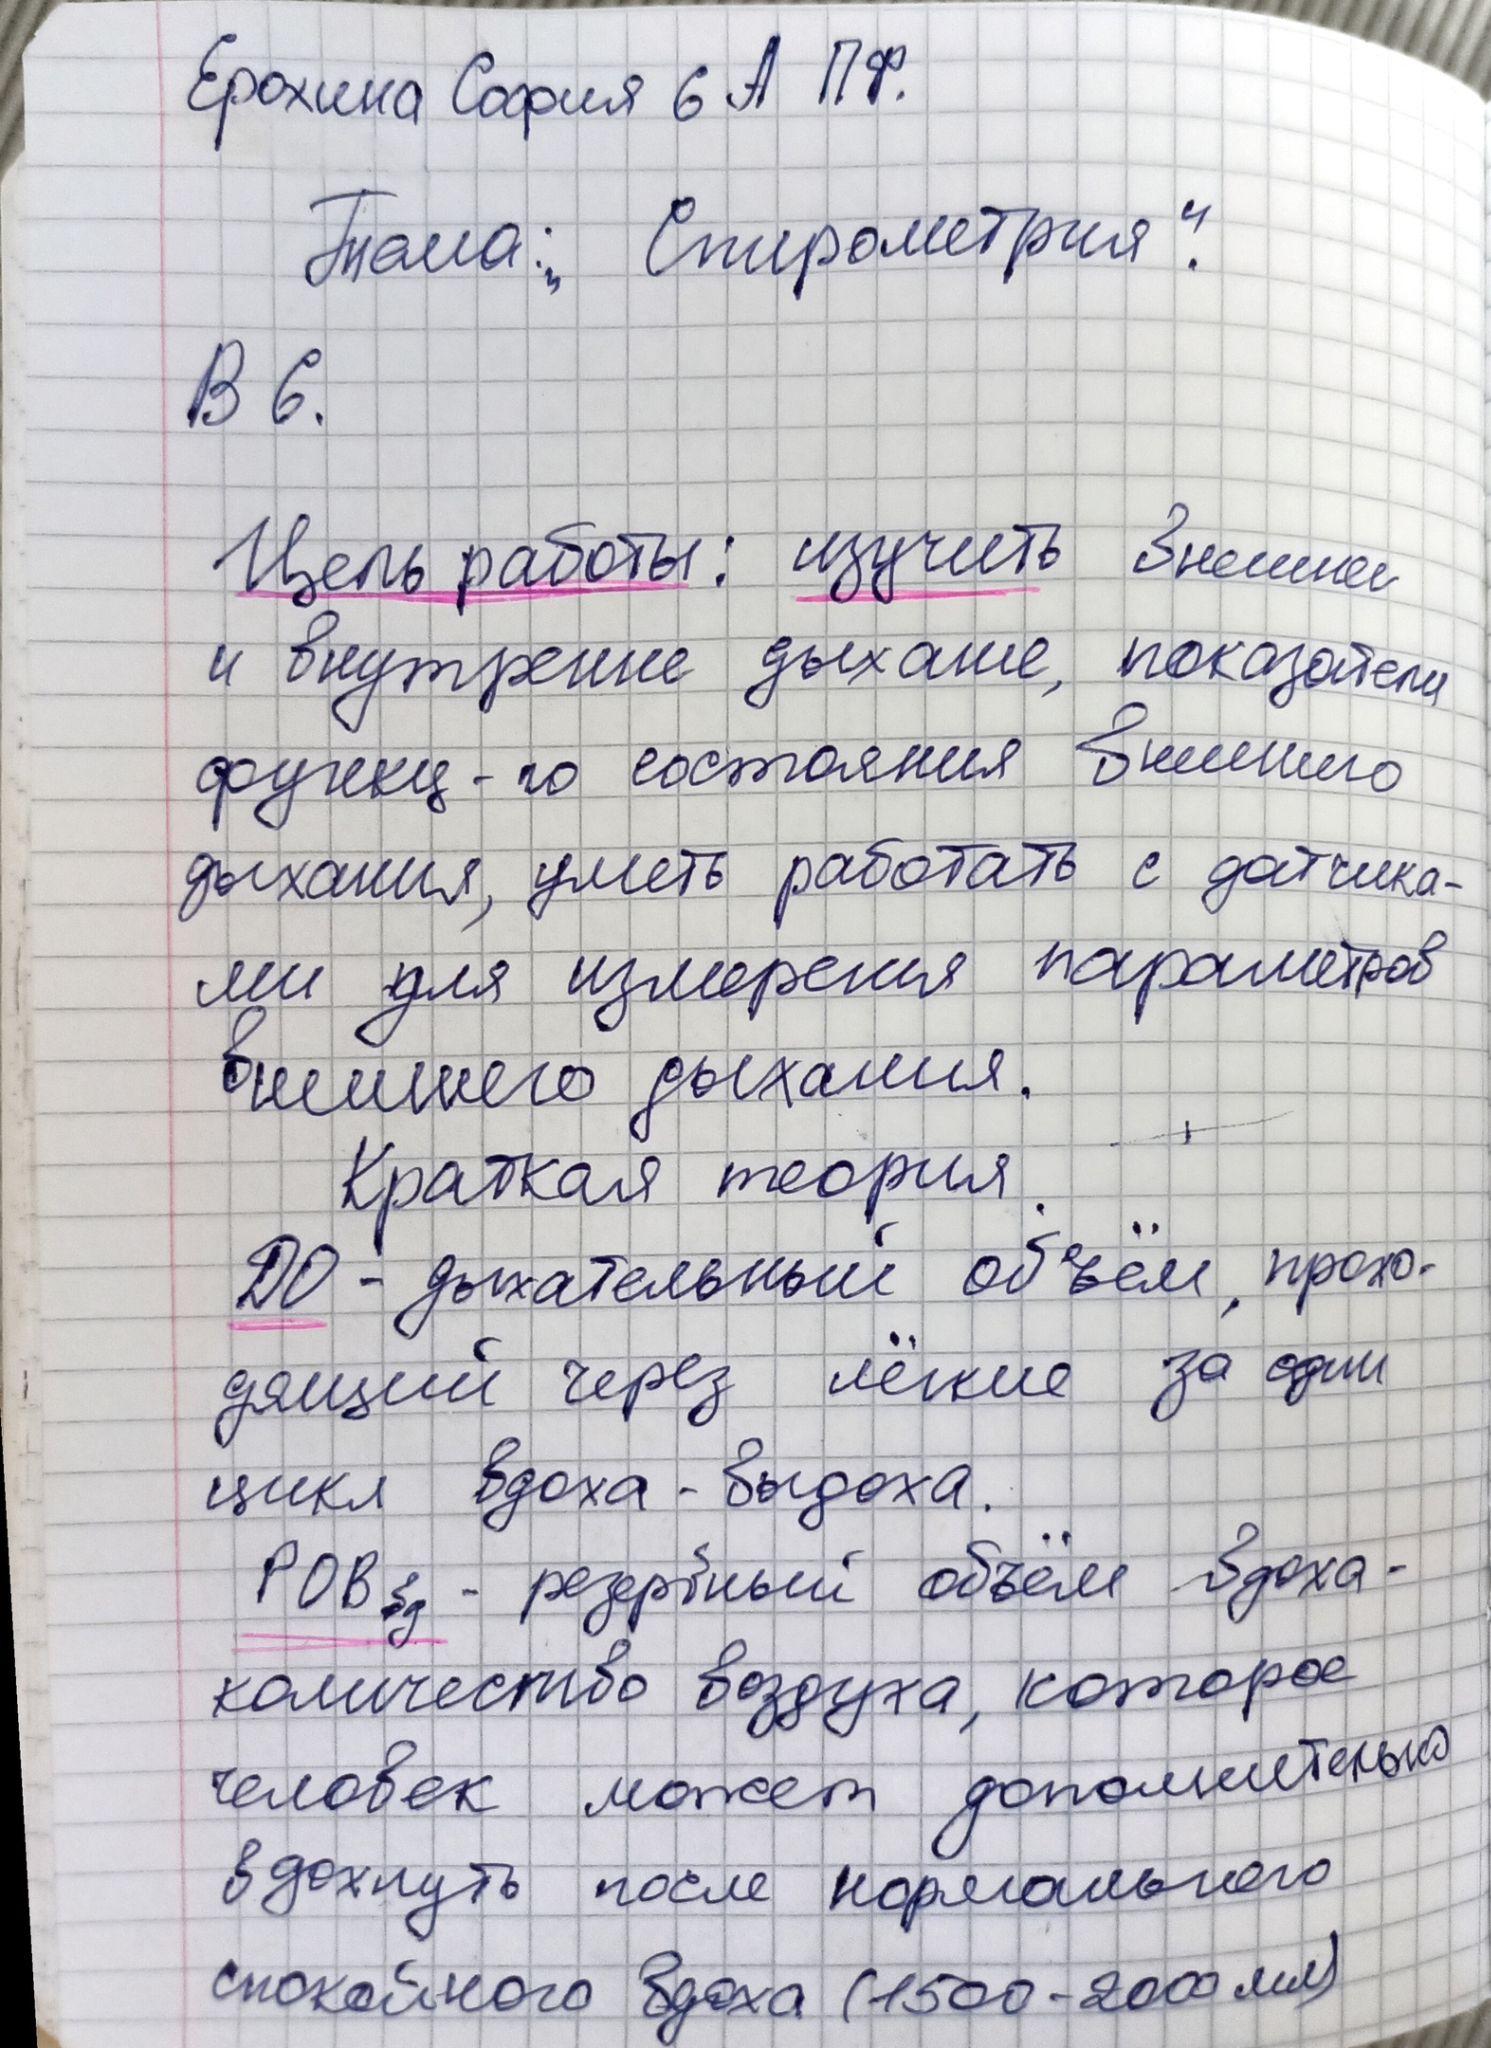 Ерохина София 6 А ПФ.
Тема: „Спирометрия“.
В 6.
Цель работы: изучить внешнее
и внутренне дыхание, показатели
функц-го состояния внешнего
дыхания, уметь работать с датчика-
ми для измерения параметров
внешнего дыхания.
Краткая теория.
ДО - дыхательный объём, прохо-
дящий через лёгкие за один
цикл вдоха-выдоха.
РОВвд - резервный объём вдоха-
количество воздуха, которое
человек может дополнительно
вдохнуть после нормального
спокойного вдоха (1500-2000 мл)